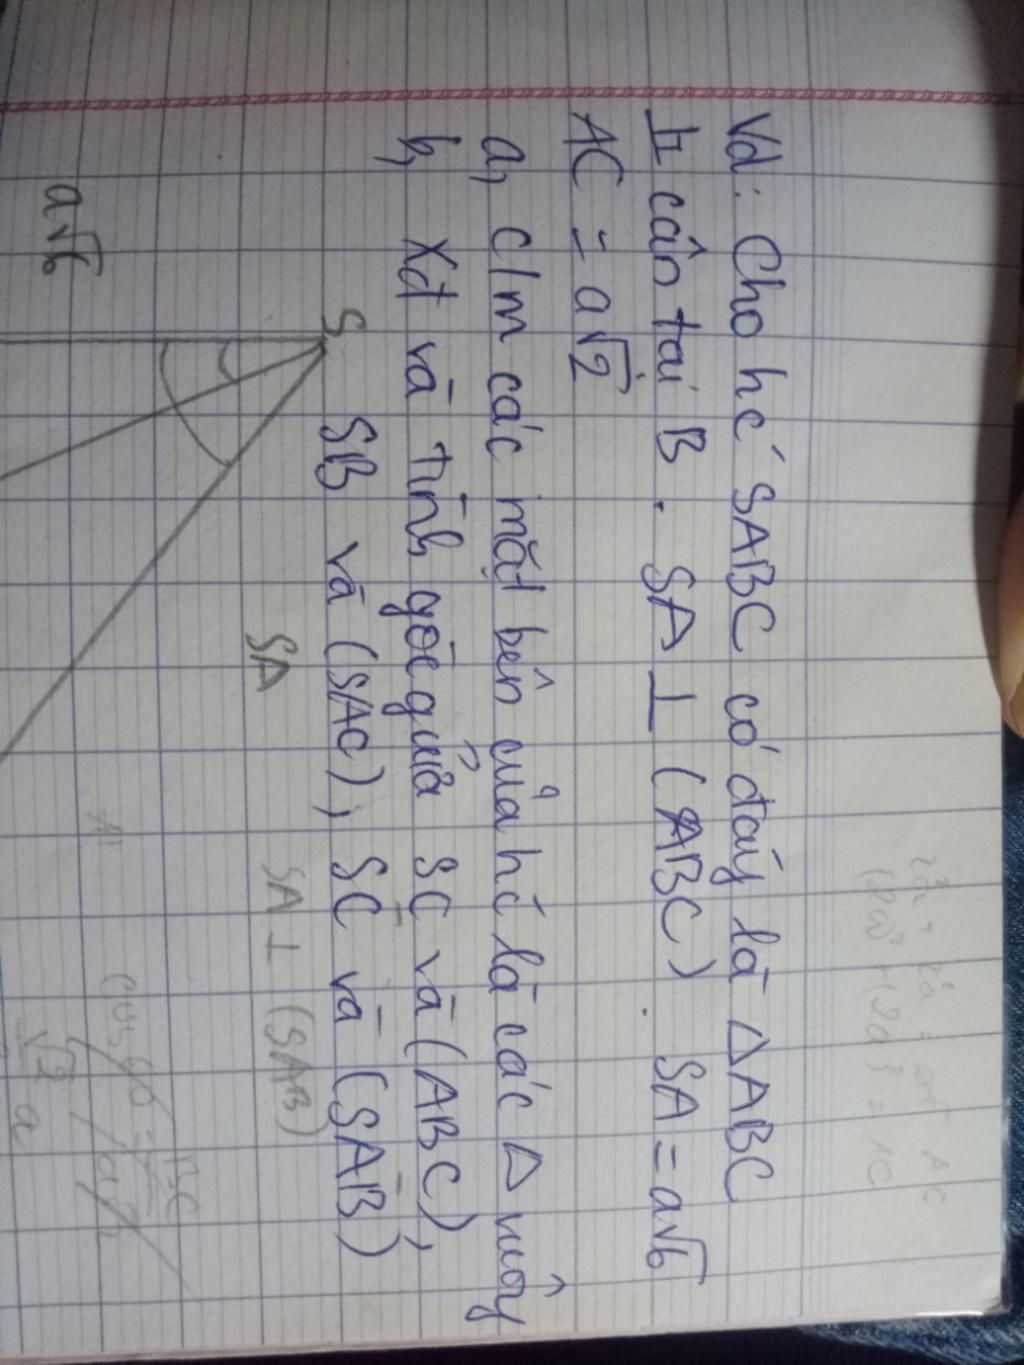 Vd: Cho hc SABC có đáy là △ABC
⊥ cân tại B. SA ⊥ (ABC). SA = a√6
AC = a√2
a, c/m các mặt bên của hc là các △ vuông
b, Xđ và tính góc giữa SC và (ABC),
SB và (SAC), SC và (SAB)
S
SA
SA ⊥ (SAB)
a√6
BC
√2
a